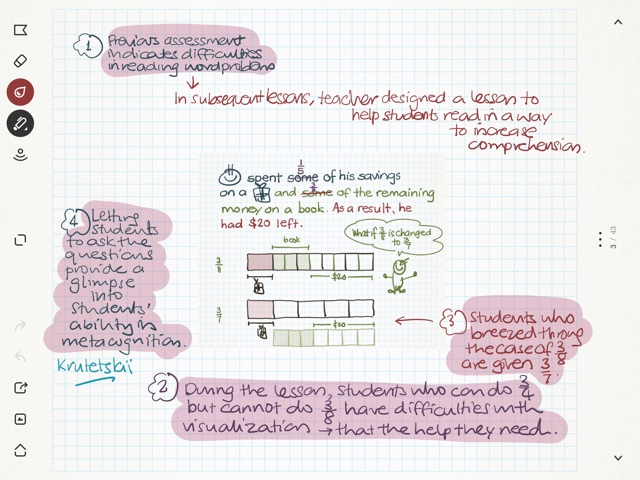 1
Previous assessment
indicates difficulties
in reading word problems
In subsequent lessons, teacher designed a lesson to
help students read in a way
to increase
comprehension.
1/5
spent some of his savings
on a and some of the remaining
money on a book. As a result, he
had $20 left.
What if 3/8 is changed
to 3/7
book
3/8
$20
3/7
$20
4
Letting
students
to ask the
questions
provide a
glimpse
into
students'
ability in
metacognition.
Krutetskii
3
Students who
breezed through
the case of 3/8
are given 3/7
2
During the lesson, students who can do 3/4
but cannot do 3/8 have difficulties with
visualization → that the help they need.
3 / 43